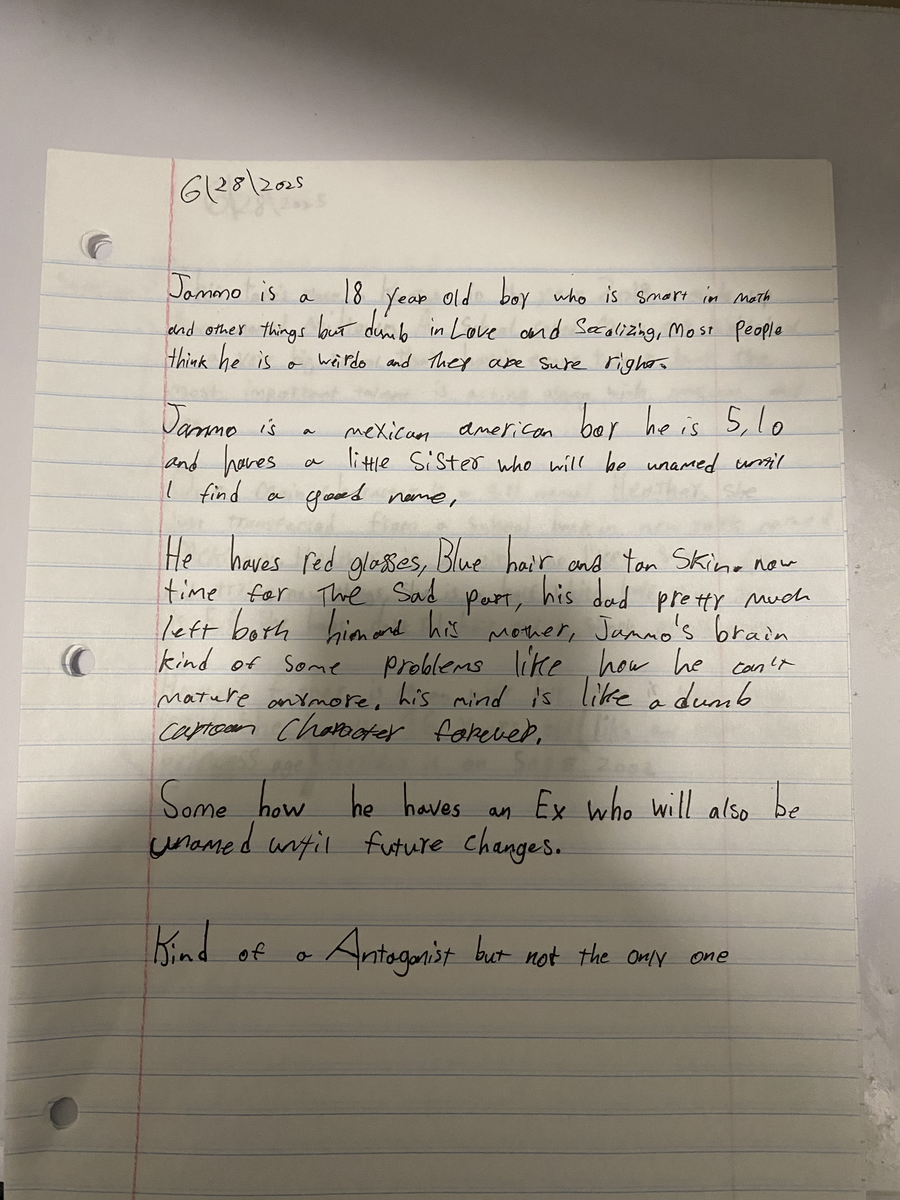 6\28\2025
Jammo is a 18 year old boy who is smart in math
and other things but dumb in Love and Socalizing, Most People
think he is a weirdo and they are sure right.
Jammo is a mexican american boy he is 5,10
and haves a little Sister who will be unamed until
I find a good name,
He haves red glasses, Blue hair and tan Skin. now
time for The Sad part, his dad pretty much
left both him and his mother, Jammo's brain
kind of some problems like how he can't
mature anymore. his mind is like a dumb
cartoon Character forever.
Some how he haves an Ex who will also be
unamed until future changes.
Kind of a Antagonist but not the only one